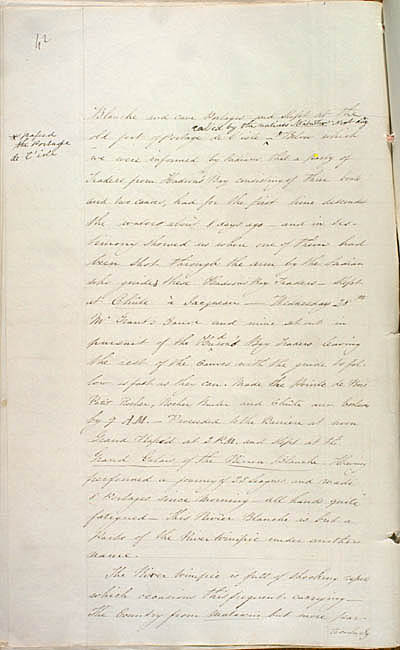 42
Blanche and cave Portages and slept at the
called by the natives
old fort of Portage de L'isle Below which
x passed
the Portage
de L'isle
we were informed by Indians that a party of
Traders from Hudsons Bay consisting of three boats
and two canoes, had for the first time descended
the waters about 8 days ago and in tes-
timony showed us where one of them had
been shot through the arm by the Indian
who guided these Hudsons Bay Traders slept
at Chûte à Jacqueau Wednesday 25th
Mr Grants Canoe and mine set out in
pursuit of the Hudsons Bay Traders leaving
the rest of the Canoes with the guide to fol-
low as fast as they can. Made the Pointe de Bois
Petit Rocher, Rocher Brulé and Chûte
by 9 A.M. Proceeded to the Barrière at noon
Grand at 2 P.M. and slept at the
Grand Galais of the Rivière Blanche Having
performed a journey of 28 leagues and made
8 Portages since morning all hands quite
fatigued This Rivière Blanche is but a
Parte of the River Winipic under another
name.
The River Winipic is full of shocking rapids
which occasions this frequent carrying
The Country from but more par-
ticularly